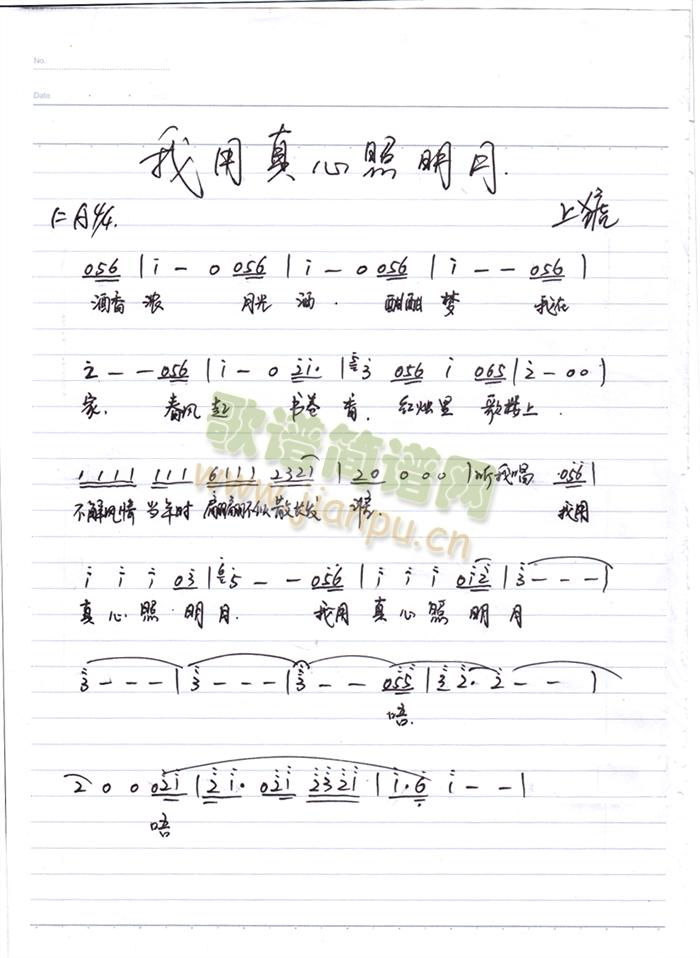 No.
Date
我用真心照明月.
1=A 4/4.
056 | i - 0 056 | i - 0 056 | i - - 056 |
酒香浓 月光 酒. 酣酣梦 我在
2 - - 056 | i - 0 2i. | 3 056 i 065 | 2 - 0 0 |
家. 春风起 书卷香. 红烛里 歌楼上.
歌谱简谱网
www.jianpu.cn
1111 111 6111 2321 | 20 0 0 0 | 听我唱 056 |
不解风情 当年时 翩翩 散长发
我用
i i i 03 | 5 - - 056 | i i i 0i2 | 3 - - - |
真心照 明月. 我用真心照 明月
3 - - - | 3 - - - | 3 - - 055 | 3 2. 2 - - |
唔.
2 0 0 02i | 2 i. 02i 232i | i. 6 i - - |
唔